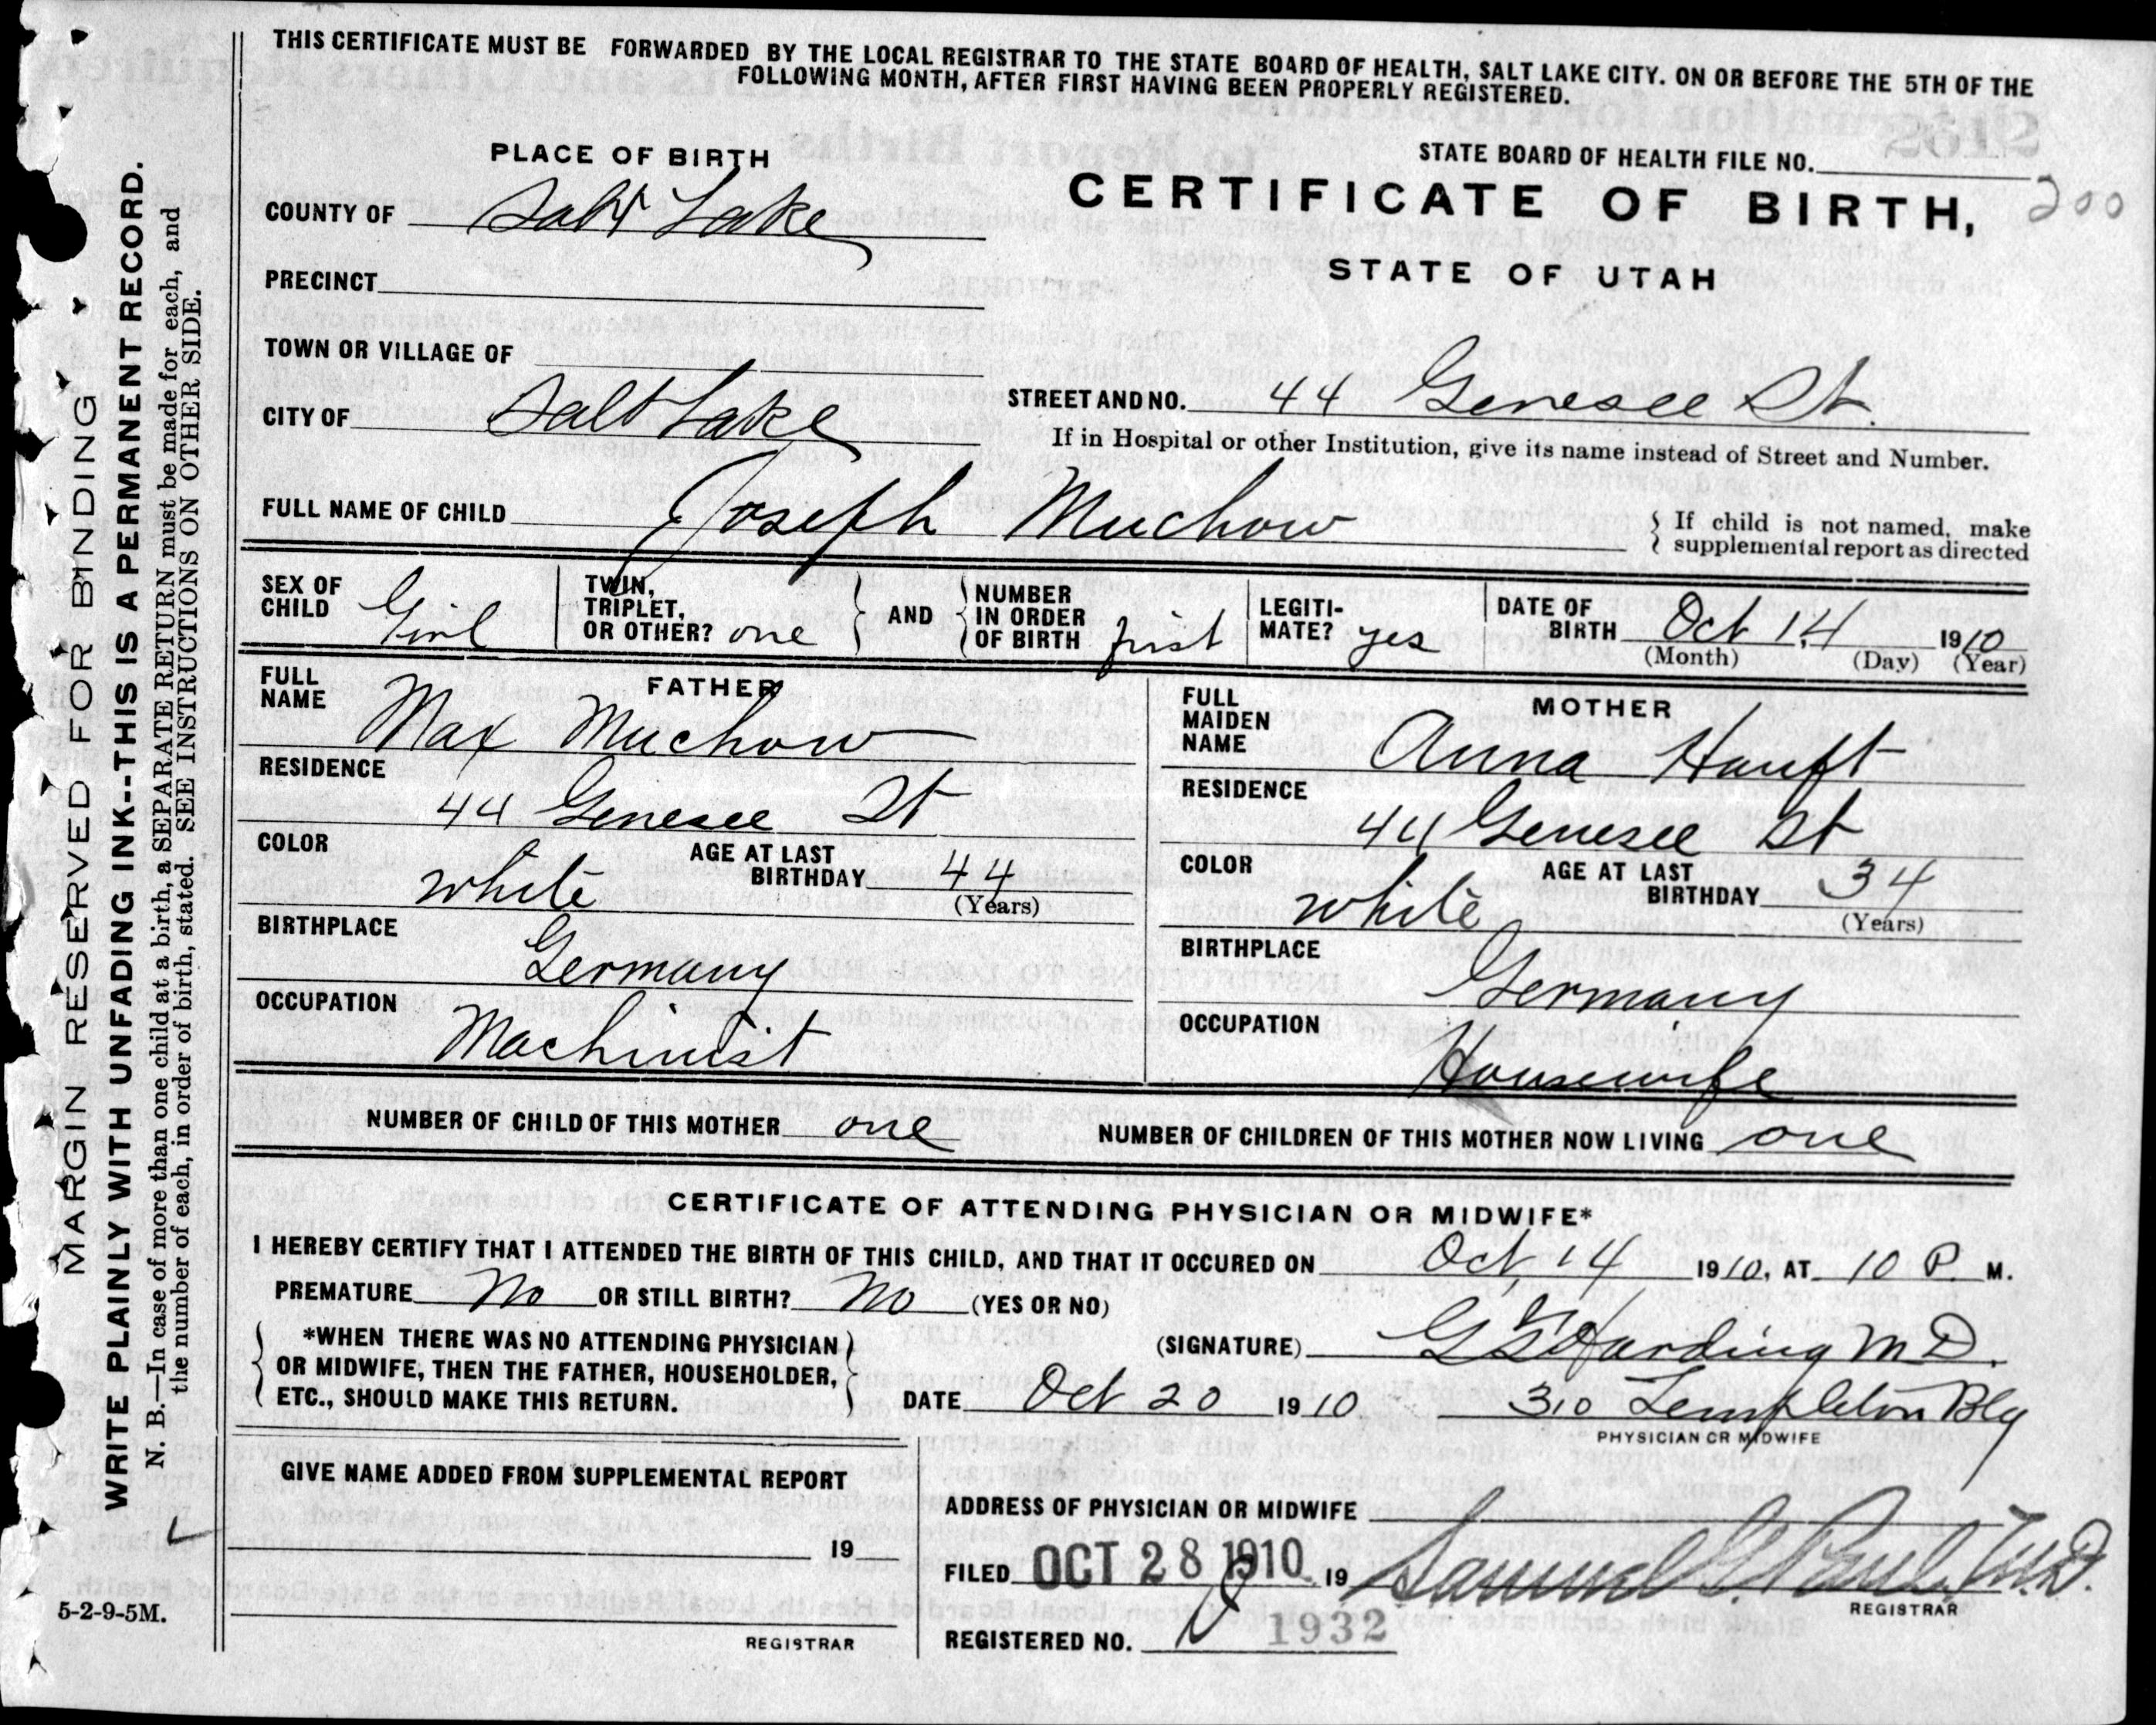 THIS CERTIFICATE MUST BE FORWARDED BY THE LOCAL REGISTRAR TO THE STATE BOARD OF HEALTH, SALT LAKE CITY. ON OR BEFORE THE 5TH OF THE
FOLLOWING MONTH, AFTER FIRST HAVING BEEN PROPERLY REGISTERED.
MARGIN RESERVED FOR BINDING
WRITE PLAINLY WITH UNFADING INK--THIS IS A PERMANENT RECORD.
N. B.—In case of more than one child at a birth, a SEPARATE RETURN must be made for each, and
the number of each, in order of birth, stated. SEE INSTRUCTIONS ON OTHER SIDE.
PLACE OF BIRTH
STATE BOARD OF HEALTH FILE NO.
200
COUNTY OF Salt Lake
CERTIFICATE OF BIRTH,
PRECINCT
STATE OF UTAH
TOWN OR VILLAGE OF
CITY OF Salt Lake
STREET AND NO. 44 Genesee St.
If in Hospital or other Institution, give its name instead of Street and Number.
FULL NAME OF CHILD Joseph Muchow
If child is not named, make
supplemental report as directed
SEX OF CHILD Girl
TWIN, TRIPLET, OR OTHER? one
AND
NUMBER IN ORDER OF BIRTH first
LEGITI-MATE? yes
DATE OF BIRTH Oct 14, 1910
(Month) (Day) (Year)
FATHER
FULL NAME Max Muchow
RESIDENCE
44 Genesee St
COLOR white
AGE AT LAST BIRTHDAY 44
(Years)
BIRTHPLACE
Germany
OCCUPATION
Machinist
MOTHER
FULL MAIDEN NAME Anna Hauft
RESIDENCE
44 Genesee St
COLOR white
AGE AT LAST BIRTHDAY 34
(Years)
BIRTHPLACE
Germany
OCCUPATION
Housewife
NUMBER OF CHILD OF THIS MOTHER one
NUMBER OF CHILDREN OF THIS MOTHER NOW LIVING one
CERTIFICATE OF ATTENDING PHYSICIAN OR MIDWIFE*
I HEREBY CERTIFY THAT I ATTENDED THE BIRTH OF THIS CHILD, AND THAT IT OCCURED ON Oct, 14 1910, AT 10 P. M.
PREMATURE No OR STILL BIRTH? No (YES OR NO)
*WHEN THERE WAS NO ATTENDING PHYSICIAN
OR MIDWIFE, THEN THE FATHER, HOUSEHOLDER,
ETC., SHOULD MAKE THIS RETURN.
(SIGNATURE) Harding M D.
DATE Oct 20 1910
310 Templeton Blg
PHYSICIAN OR MIDWIFE
GIVE NAME ADDED FROM SUPPLEMENTAL REPORT
19
REGISTRAR
ADDRESS OF PHYSICIAN OR MIDWIFE
FILED OCT 28 1910 19 Samuel G. Paul, M.D.
REGISTRAR
REGISTERED NO. 1932
5-2-9-5M.